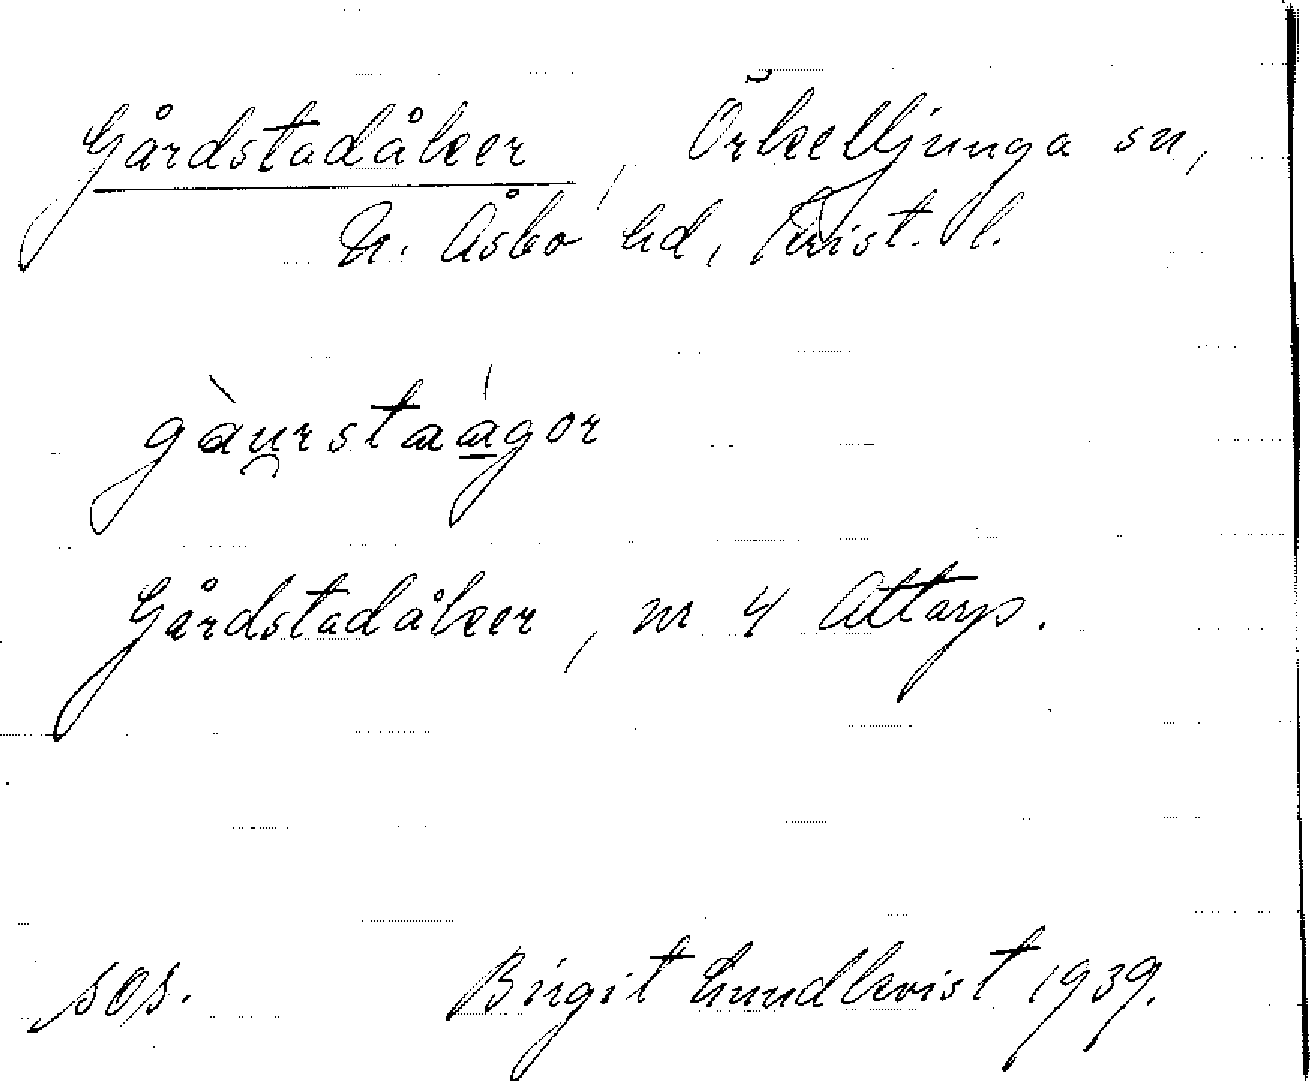 Gårdstadåker, Örkelljunga sn,
N. Åsbo hd, Krist. l.
gàu̯rstaág̱or
Gårdstadåker, nr 4 Attarp.
sos. Birgit Lundkvist 1939.